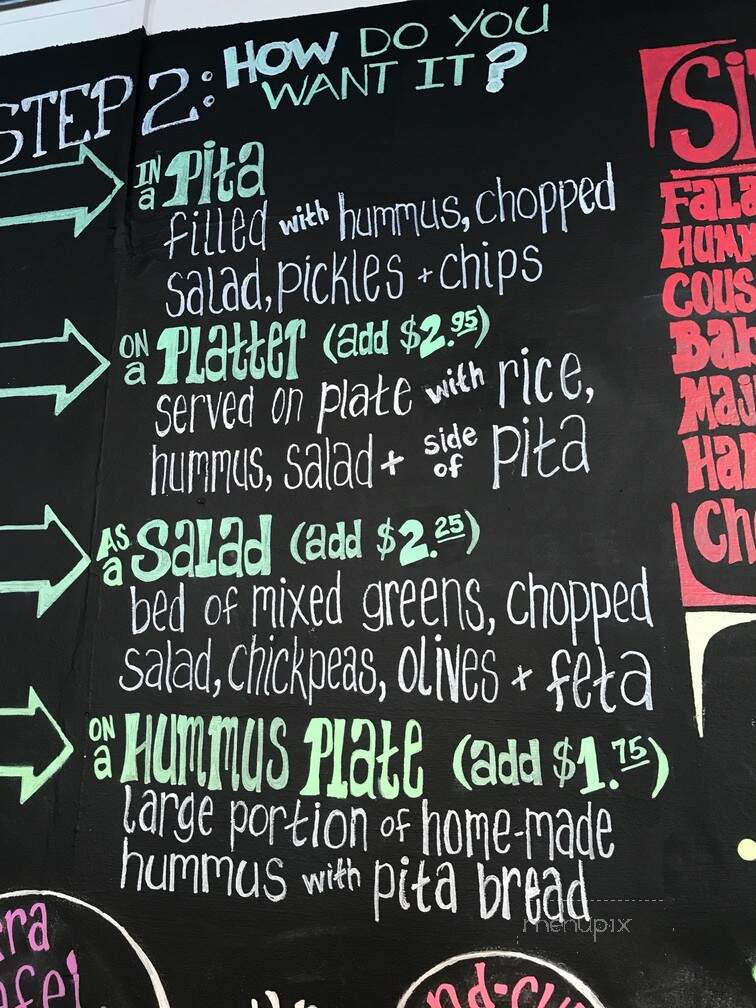 STEP 2: HOW DO YOU
WANT IT?
IN a Pita
filled with hummus, chopped
salad, pickles + chips
ON a PLatteR (add $2.95)
served on plate with rice,
hummus, salad + side of pita
AS a SaLad (add $2.25)
bed of mixed greens, chopped
salad, chickpeas, olives + feta
ON a HUMMUS PLate (add $1.75)
large portion of home-made
hummus with pita bread
menupix